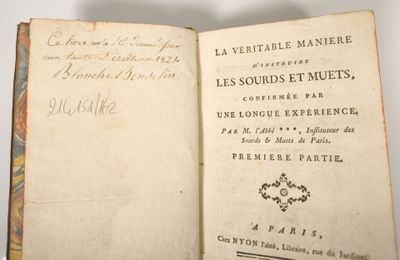 Ce livre m'a été donné par
ma tante
1824
Blanche
LA VERITABLE MANIERE
D'INSTRUIRE
LES SOURDS ET MUETS,
CONFIRMÉE PAR
UNE LONGUE EXPÉRIENCE.
PAR M. l'Abbé ***, Instituteur des
Sourds & Muets de Paris.
PREMIERE PARTIE.
A PARIS,
Chez NYON l'aîné, Libraire, rue du Jardinet